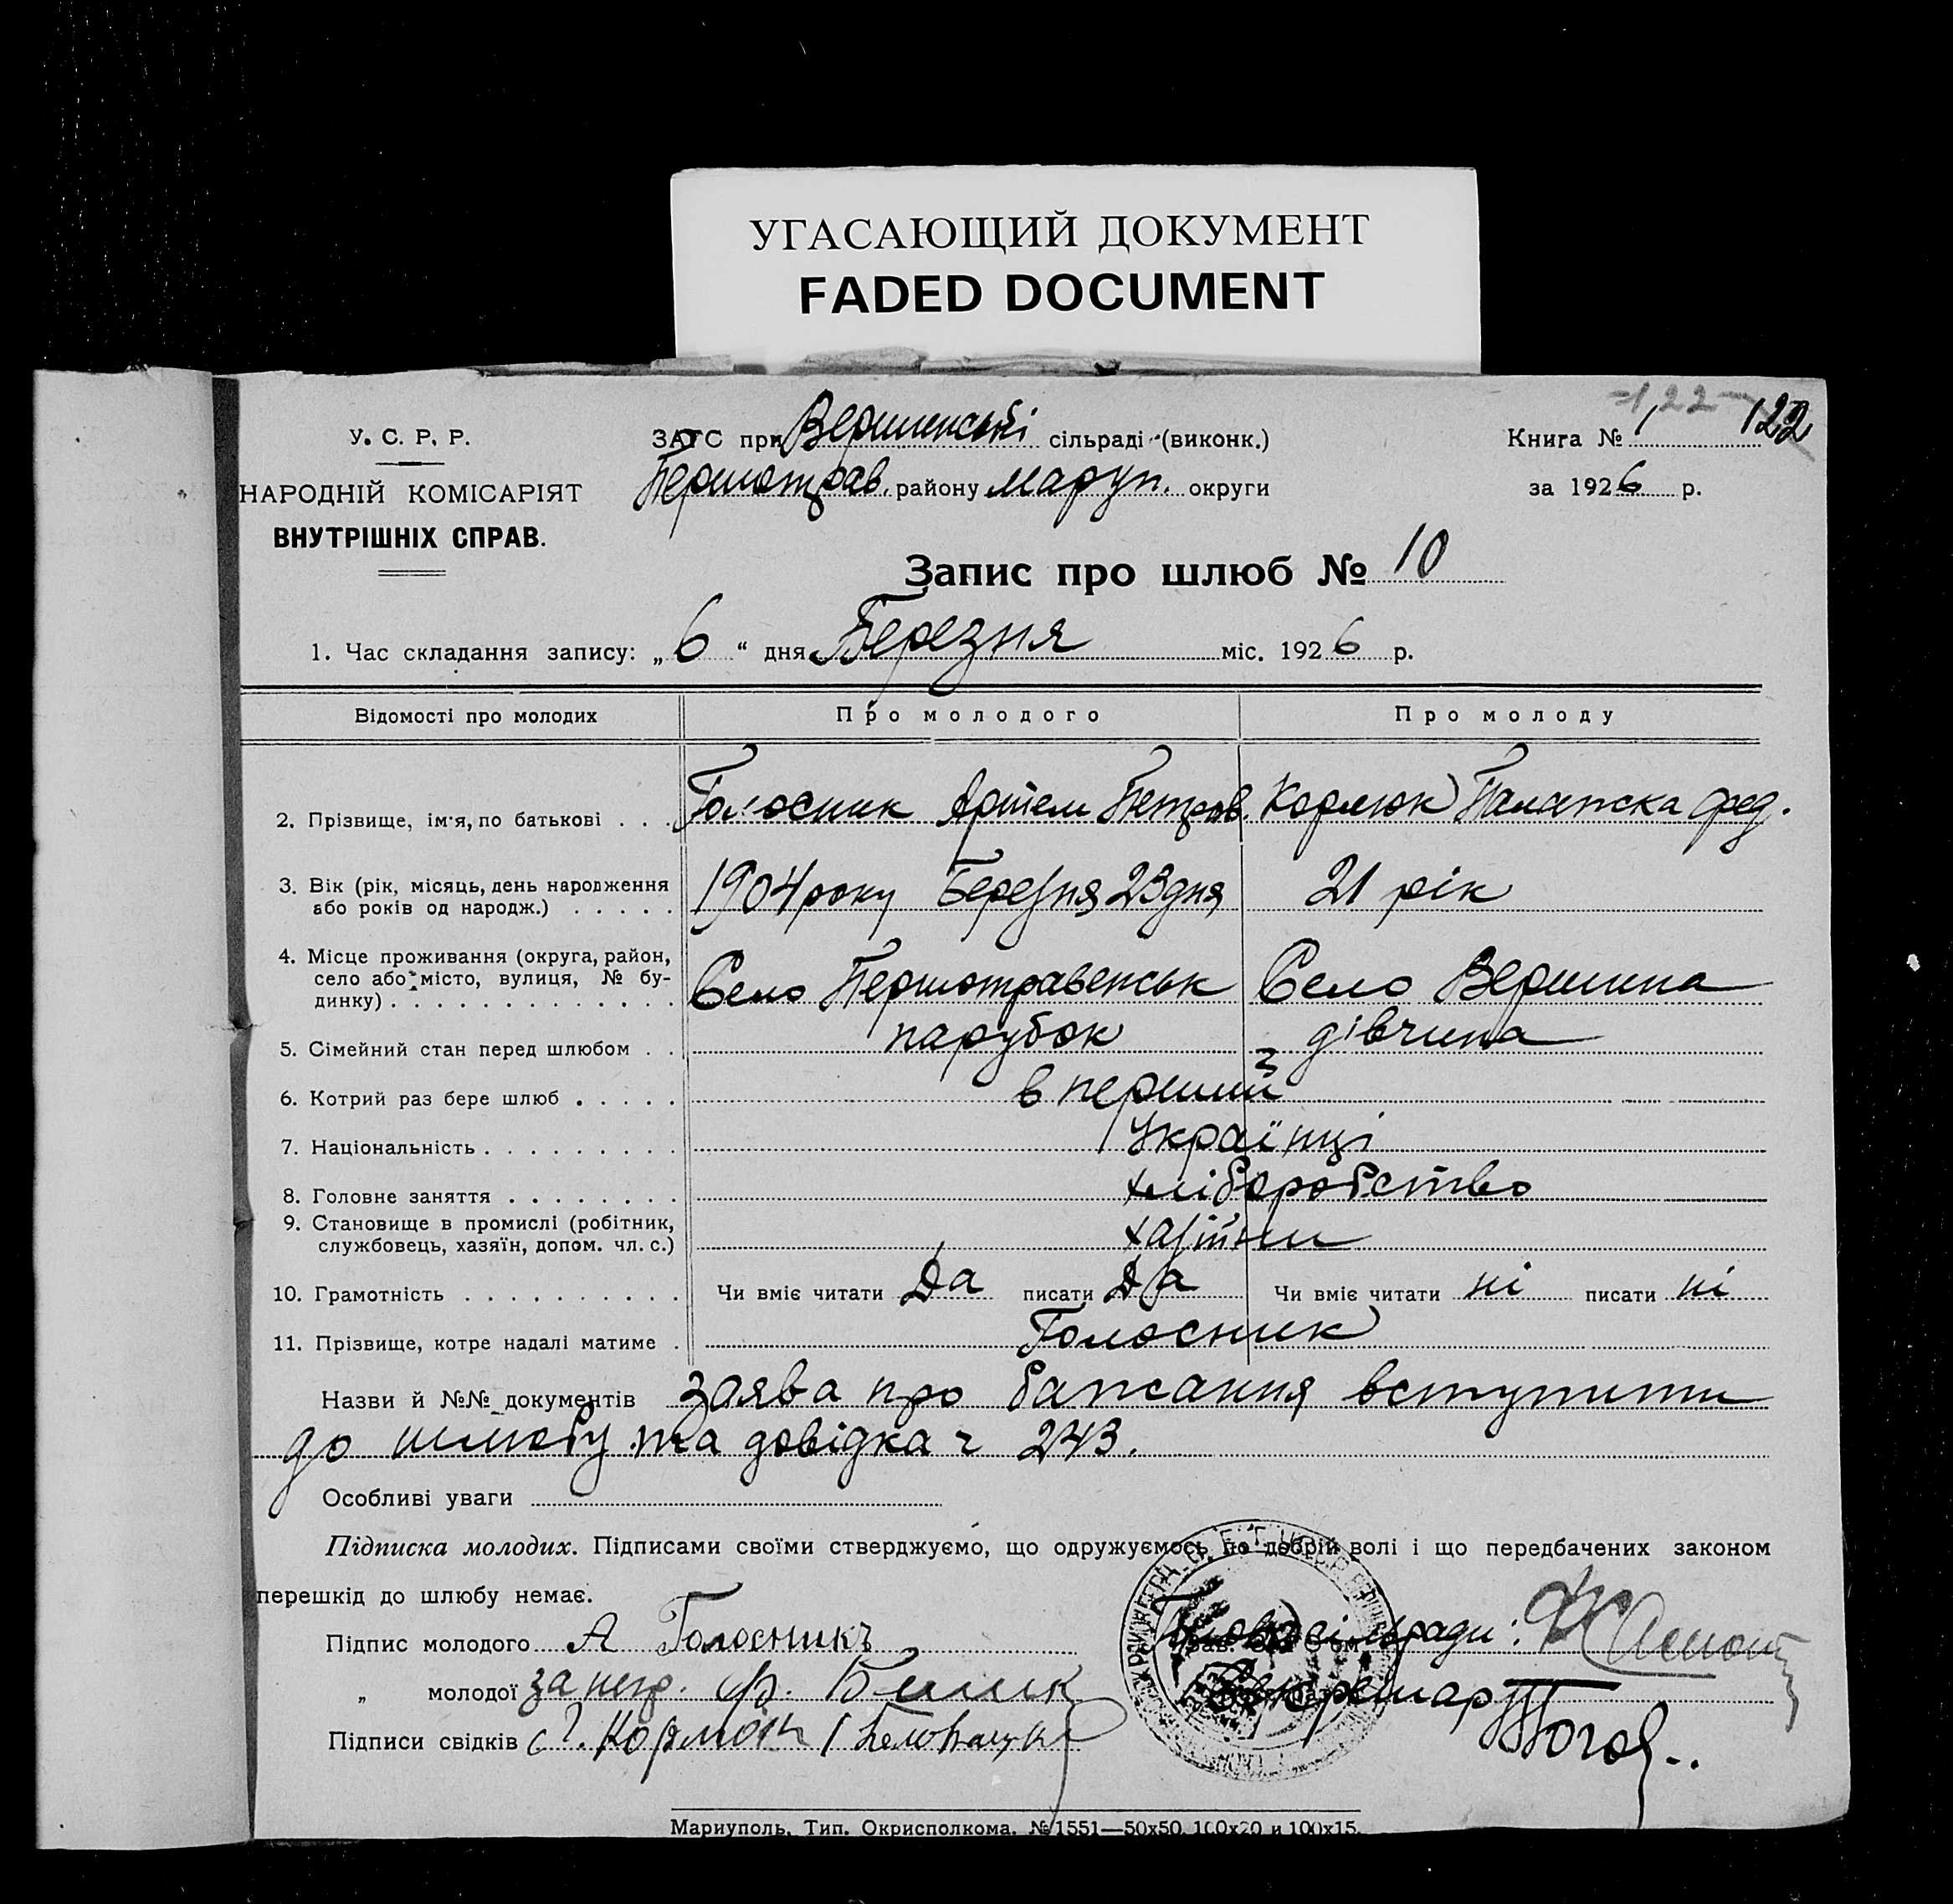 УГАСАЮЩИЙ ДОКУМЕНТ
FADED DOCUMENT
=122=
У. С. Р. Р.
НАРОДНІЙ КОМІСАРІЯТ
ВНУТРІШНІХ СПРАВ.
ЗАГС при Вершинській сільраді (виконк.)
Першотрав. району Маруп. округи
Книга № 1 122
за 1926 р.
Запис про шлюб № 10
1. Час складання запису: „6“ дня Березня міс. 1926 р.
Відомості про молодих Про молодого Про молоду
2. Прізвище, ім'я, по батькові . . . Голосник Артем Петров. Кормюк Палажка Фед.
3. Вік (рік, місяць, день народження
або років од народж.) . . . . . 1904 року Березня 23 дня 21 рік
4. Місце проживання (округа, район,
село або місто, вулиця, № бу-
динку) . . . . . . . . . . . . . Село Першотравенськ Село Вершина
5. Сімейний стан перед шлюбом . . парубок дівчина
6. Котрий раз бере шлюб . . . . . в перший
7. Національність . . . . . . . . . Українці
8. Головне заняття . . . . . . . . хліборобство
9. Становище в промислі (робітник,
службовець, хазяїн, допом. чл. с.)
10. Грамотність . . . . . . . . . . Чи вміє читати Да писати Да Чи вміє читати ні писати ні
11. Прізвище, котре надалі матиме . Голосник
Назви й №№ документів заява про бажання вступити
до шлюбу та довідка ч 243.
Особливі уваги
Підписка молодих. Підписами своїми стверджуємо, що одружуємось по добрій волі і що передбачених законом
перешкід до шлюбу немає.
Підпис молодого А Голосникъ Голова сільради:
„ молодої за негр. Ф. Билик Секретар
Підписи свідків
Мариуполь. Тип. Окрисполкома. № 1551—50х50, 100х20 и 100х15.